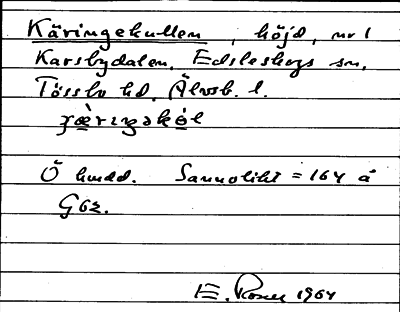 Käringekullen, höjd, nr 1
Karsbydalen, Edsleskogs sn,
Tössbo hd, Älvsb. l.
Ö hmdd. Sannolikt = 164 å
G62.
E. Rosell 1964